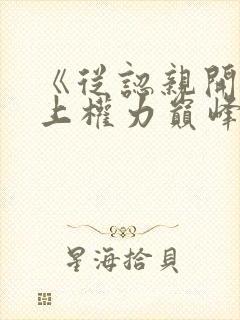 《從認親開
上權力巔峰
星海拾貝